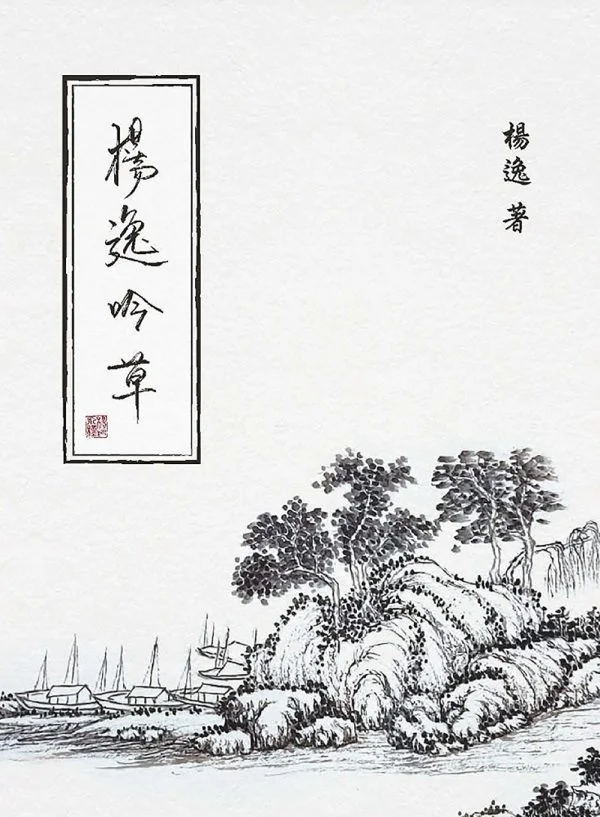 楊逸著
楊逸吟草